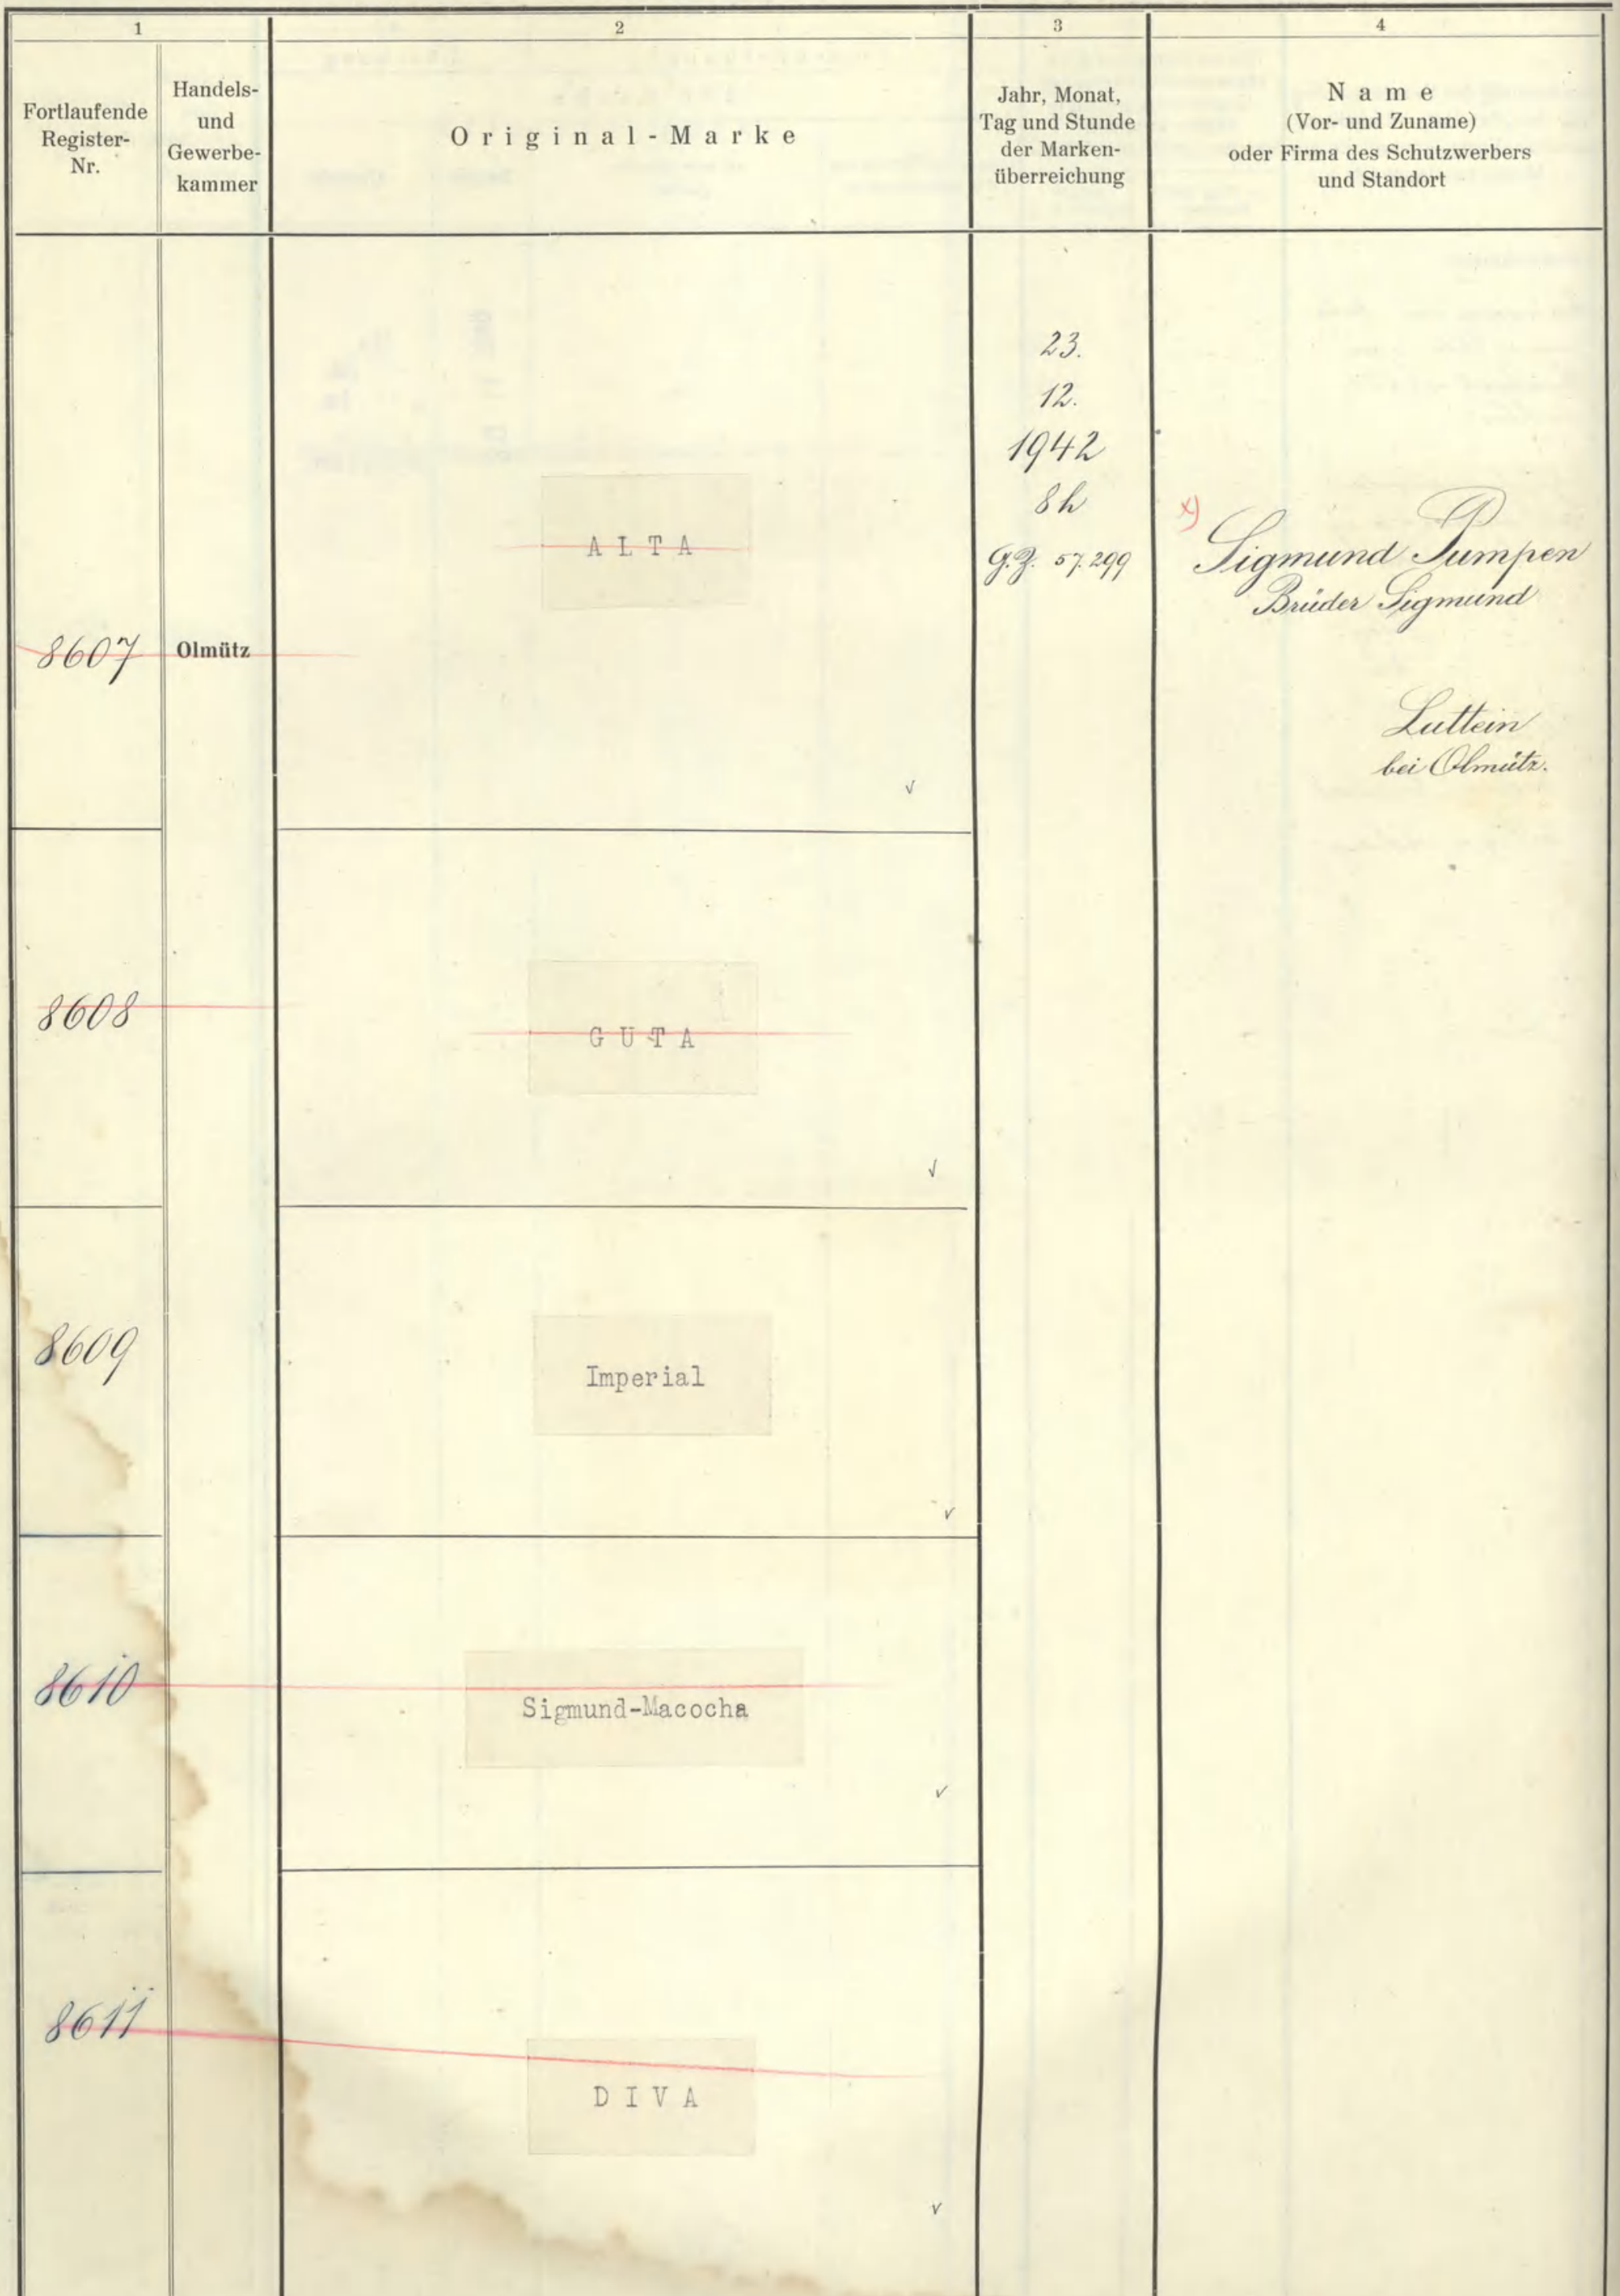 1
2
3
4
Fortlaufende
Register-
Nr.
Handels-
und
Gewerbe-
kammer
Original-Marke
Jahr, Monat,
Tag und Stunde
der Marken-
überreichung
Name
(Vor- und Zuname)
oder Firma des Schutzwerbers
und Standort
8607
Olmütz
ALTA
23.
12.
1942
8h
G.Z. 57.299
x)
Sigmund Pumpen
Brüder Sigmund
Luttein
bei Olmütz.
8608
GUTA
8609
Imperial
8610
Sigmund-Macocha
8611
DIVA